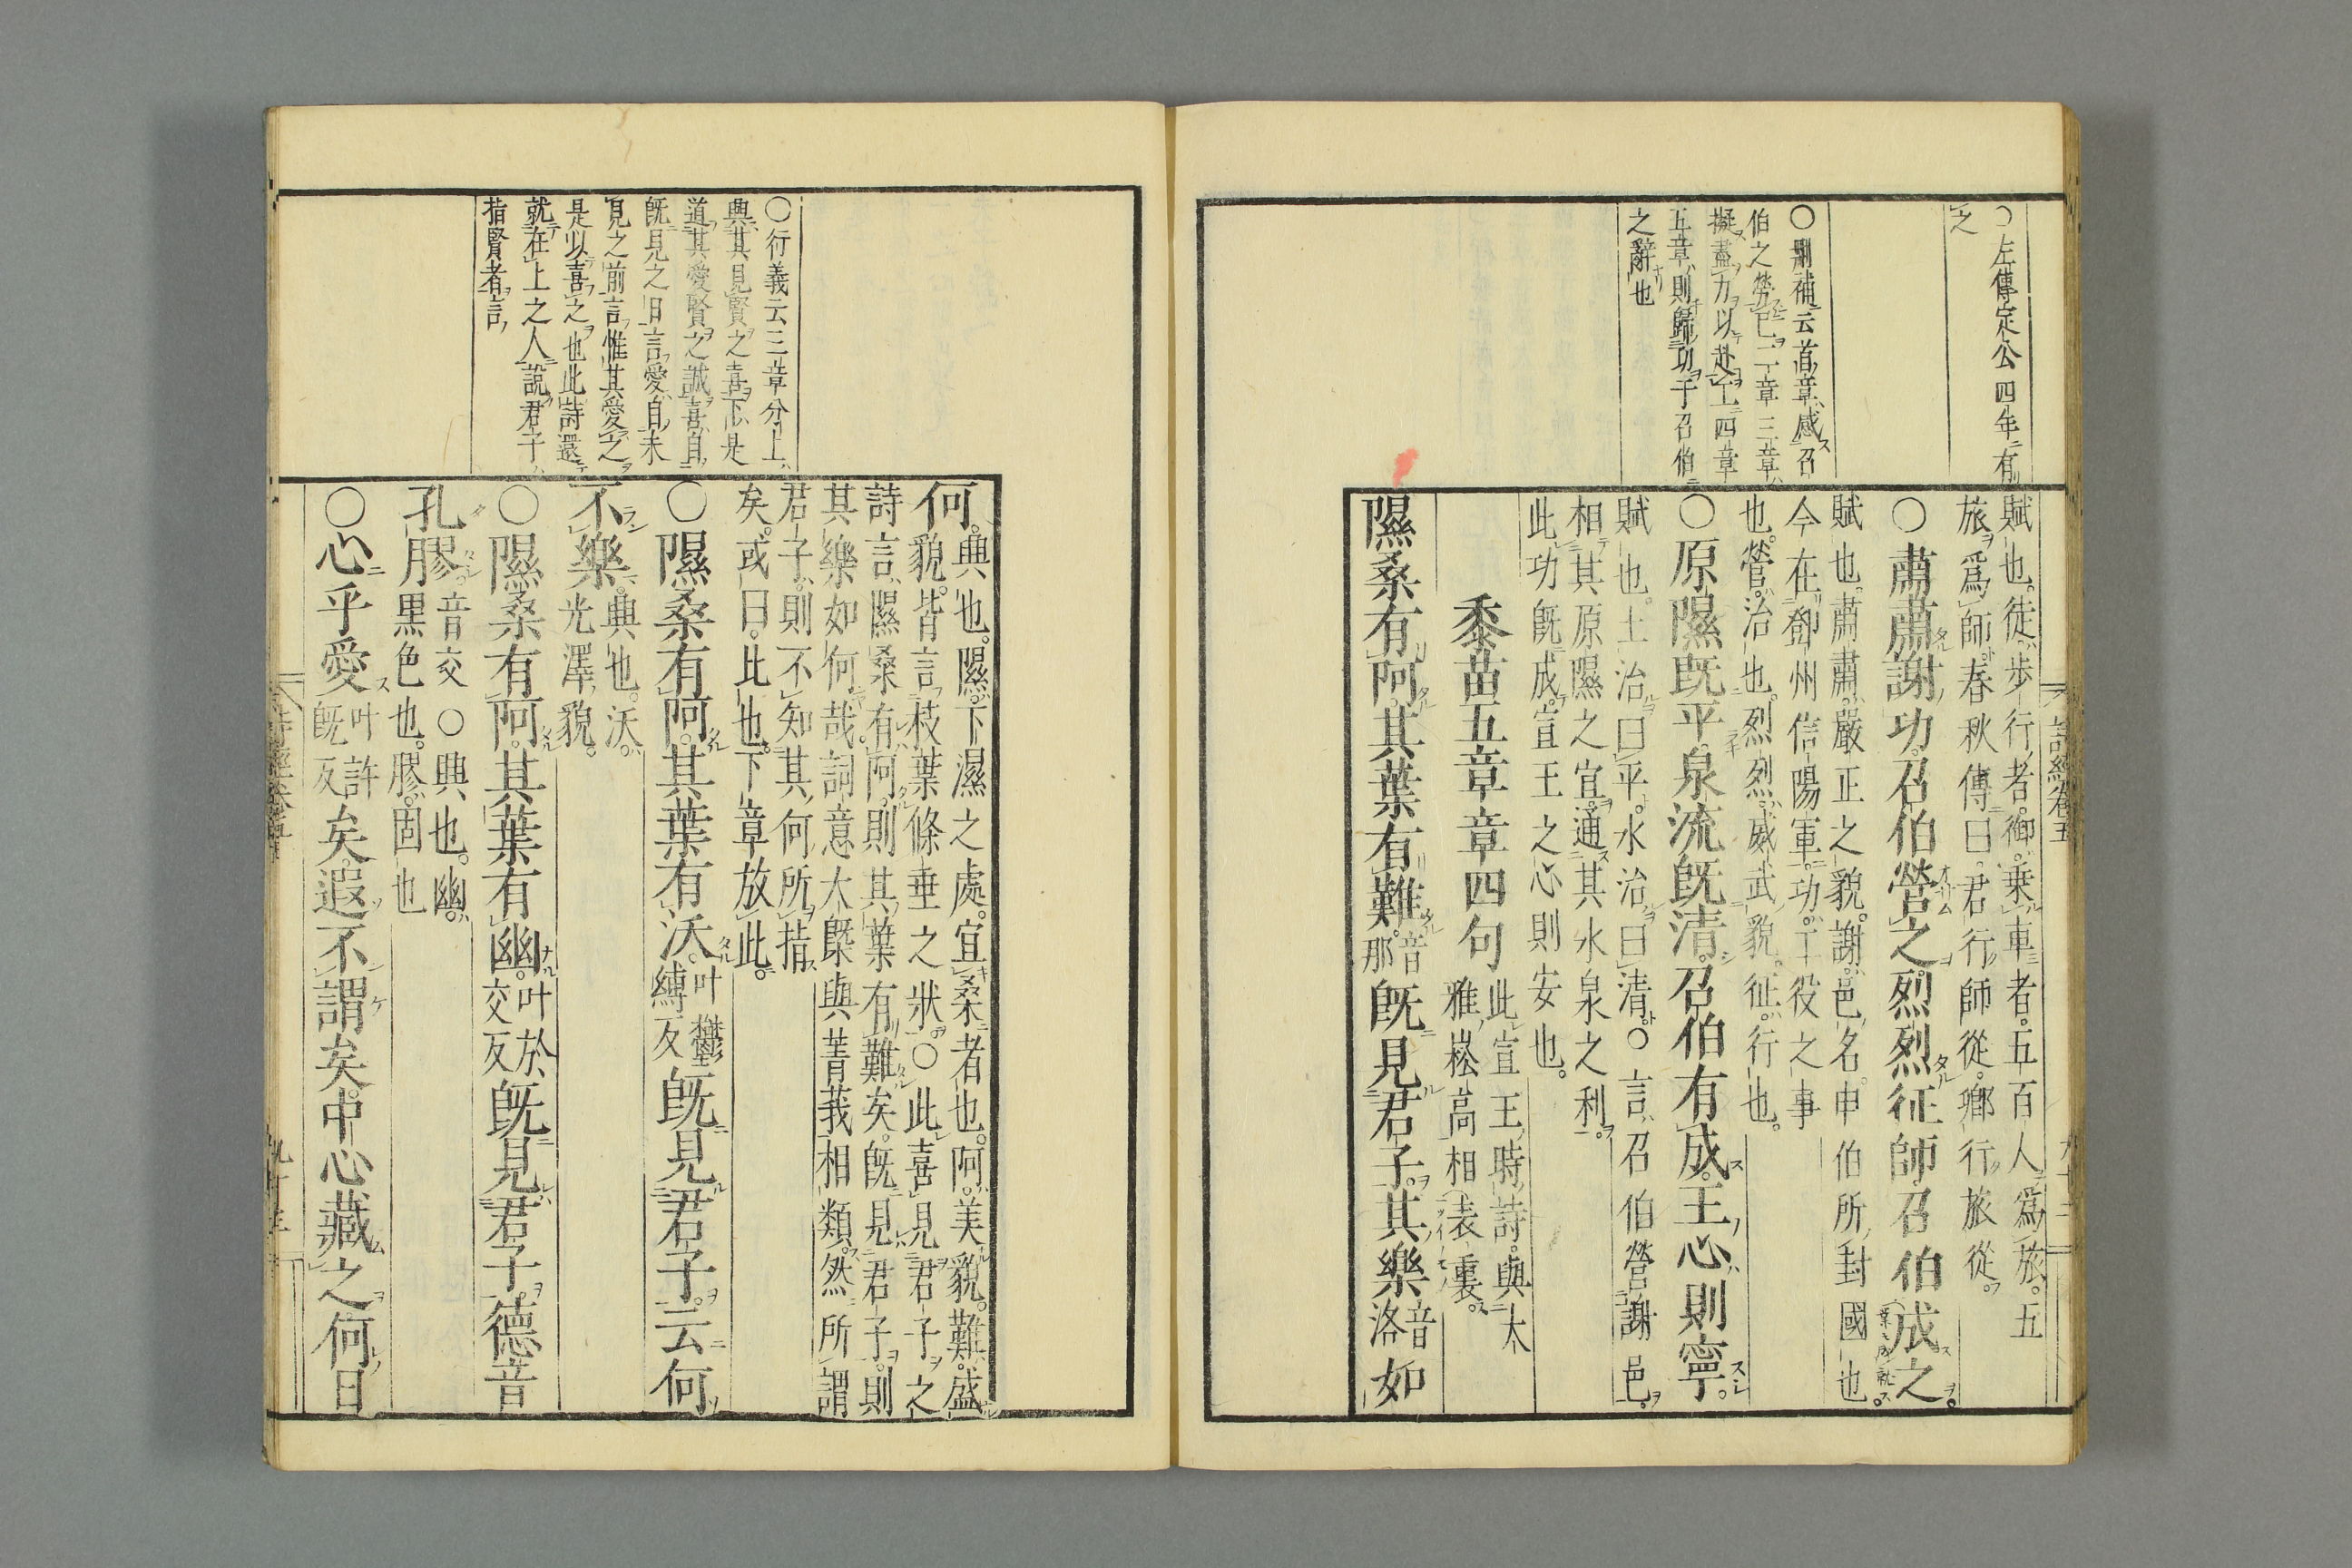 ○左傳定公四年有
之
○刪補云首章感召
伯之勞已二章三章
擬盡力以赴工四章
五章則歸功于召伯
之辭也
賦也。徒歩行者。御。乗車者。五百人爲旅。五
旅爲師。春秋傳曰。君行師從。卿行旅從。
○肅肅謝功。召伯營之。烈烈征師。召伯成之。
賦也。肅肅。嚴正之貌。謝。邑名。申伯所封國也
今在鄧州信陽軍。功。工役之事
也。營。治也。烈烈。威武貌。征。行也。
○原隰既平。泉流既清。召伯有成。王心則寧。
賦也。土治曰平。水治曰清。○言召伯營謝邑。
相其原隰之宜。通其水泉之利。
此功既成。宣王之心則安也。
黍苗五章章四句 此宣王時詩。與大
雅崧高相表裏。
隰桑有阿。其葉有難。音那既見君子。其樂音洛如
詩經卷五
九十二
何。興也。隰。下濕之處。宜桑者也。阿。美貌。難。盛
貌。皆言枝葉條垂之狀。○此喜見君子之
詩。言隰桑有阿。則其葉有難矣。既見君子。則
其樂如何哉。詞意大槩與菁莪相類。然所謂
君子。則不知其何所指
矣。或曰。比也。下章放此。
○隰桑有阿。其葉有沃。叶鬱縛反既見君子。云何
不樂。興也。沃。
光澤貌。
○隰桑有阿。其葉有幽。叶於交反既見君子。德音
孔膠。音交○興也。幽。
黒色也。膠。固也
○心乎愛叶許既反矣。遐不謂矣。中心藏之。何日
○衍義云三章分上
興其見賢之喜下是
道其愛賢之誠喜自
既見之日言愛自未
見之前言惟其愛之
是以喜之也此詩還
就在上之人說君子
指賢者言